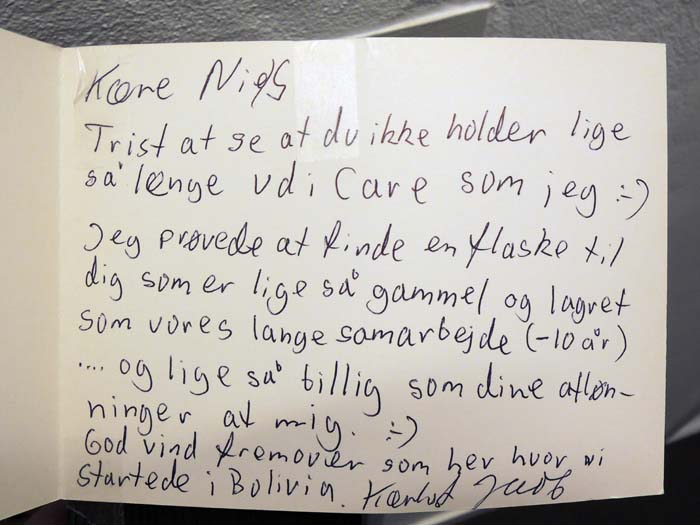 Kære Niels
Trist at se at du ikke holder lige
så længe ud i Care som jeg :-)
Jeg prøvede at finde en flaske til
dig som er lige så gammel og lagret
som vores lange samarbejde (-10 år)
.... og lige så billig som dine afløn-
ninger af mig. :-)
God vind fremover som her hvor vi
startede i Bolivia. Kærligst Jacob